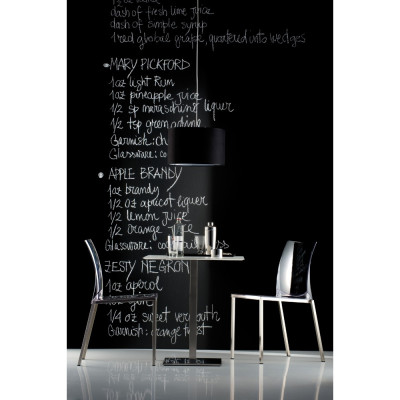 dash of fresh lime juice
dash of simple syrup
1 red global grape, quartered into wedges
MARY PICKFORD
1oz light Rum
1oz pineapple juice
1/2 sp maraschino liquer
1/2 tsp grenadine
Garnish: ch
Glassware: co
APPLE BRANDY
1oz brandy
1/2 oz apricot liquer
1/2 lemon juice
1/2 orange juice
Glassware: cocktail glass
ZESTY NEGRONI
1oz aperol
1oz gin
1/4 oz sweet vermouth
Garnish: orange twist